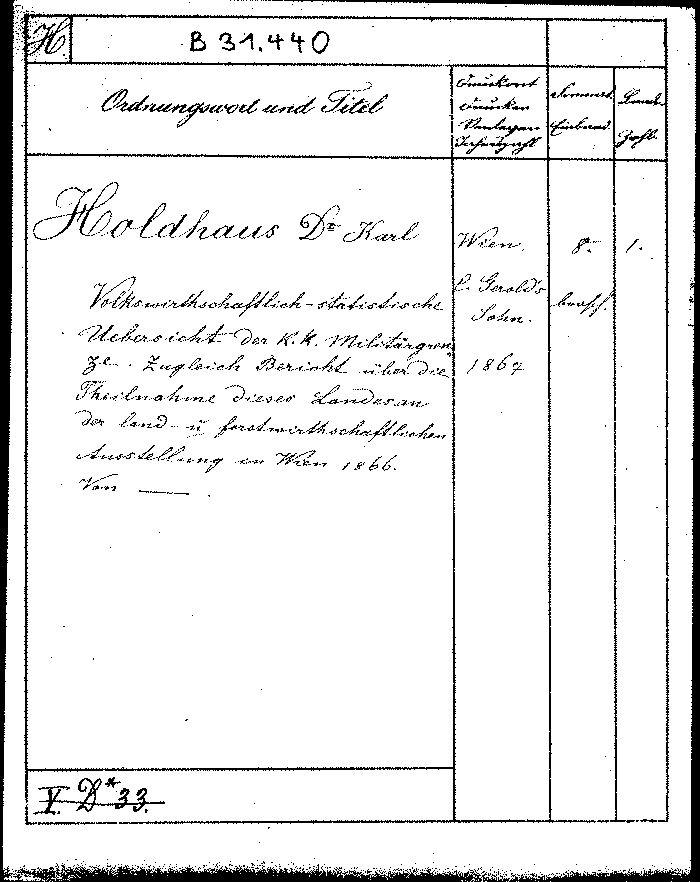 H.
B 31.440
Ordnungswort und Titel
Druckort
Drucker
Verleger
Jahrzahl
Format.
Einband
Band-
Zahl.
Holdhaus Dr Karl
Wien.
8.-
1.
Volkswirthschaftlich-statistische
C. Gerold's
Sohn.
brosch.
Uebersicht der K. K. Militärgren
ze. Zugleich Bericht über die
1867
Theilnahme dieses Landes an
der land- u forstwirthschaftlichen
Ausstellung in Wien 1866.
Von ——
V. D* 33.